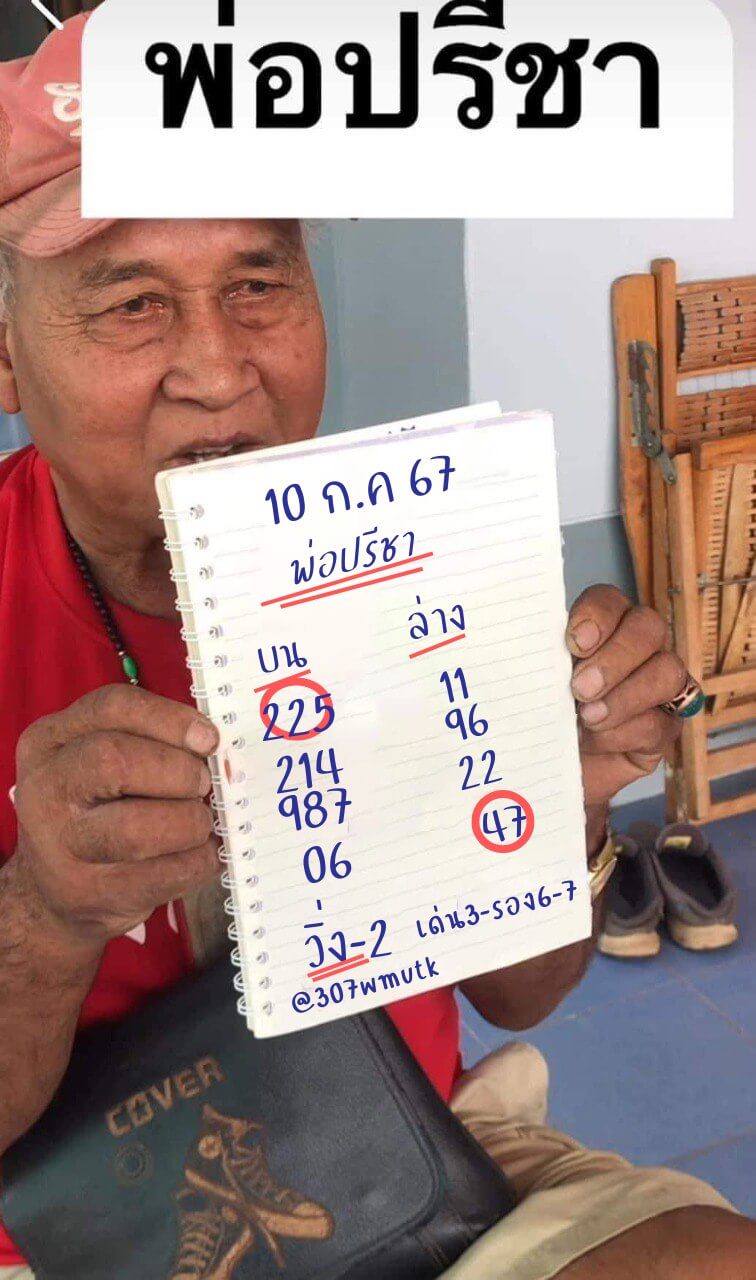 พ่อปรีชา
10 ก.ค 67
พ่อปรีชา
บน ล่าง
225 11
214 96
987 22
06 47
วิ่ง-2 เด่น3-รอง6-7
@307wmutk
COVER